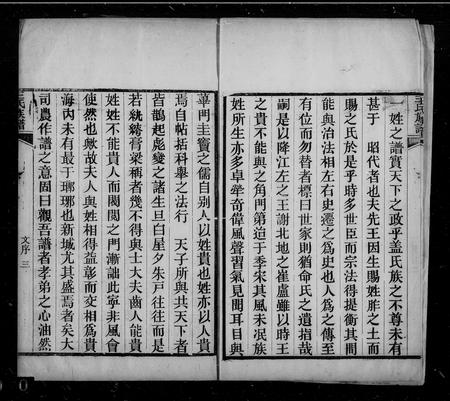 王氏族譜
一姓之譜實天下之政乎蓋氏族之不尊未有
甚于　昭代者也夫先王因生賜姓胙之土而
賜之氏於是乎時多世臣而宗法得提衡其間
能與治法相左右史遷之為史也人為之傳至
有位而勿替者標曰世家則猶命氏之遺指哉
嗣是以降江左之王謝北地之崔盧雖以時王
之貴不能與之角門第迨于季宋其風未泯族
姓所生亦多卓犖奇偉風聲習氣見聞耳目與
華門圭竇之儒自別人以姓貴也姓亦以人貴
焉自帖括科舉之法行　天子所與共天下者
皆鵲起彪變之諸生旦白屋夕朱戶往往而是
若紈綺膏粱稱者幾不得與士大夫齒人能貴
姓姓不能貴人而閥閱之門漸詘此寧非風會
使然也歟故夫人與姓相得益彰而交相為貴
海內未有最于瑯琊也新城尤其盛焉者矣大
司農作譜之意固曰觀吾譜者孝弟之心油然
王氏族譜
文序　三